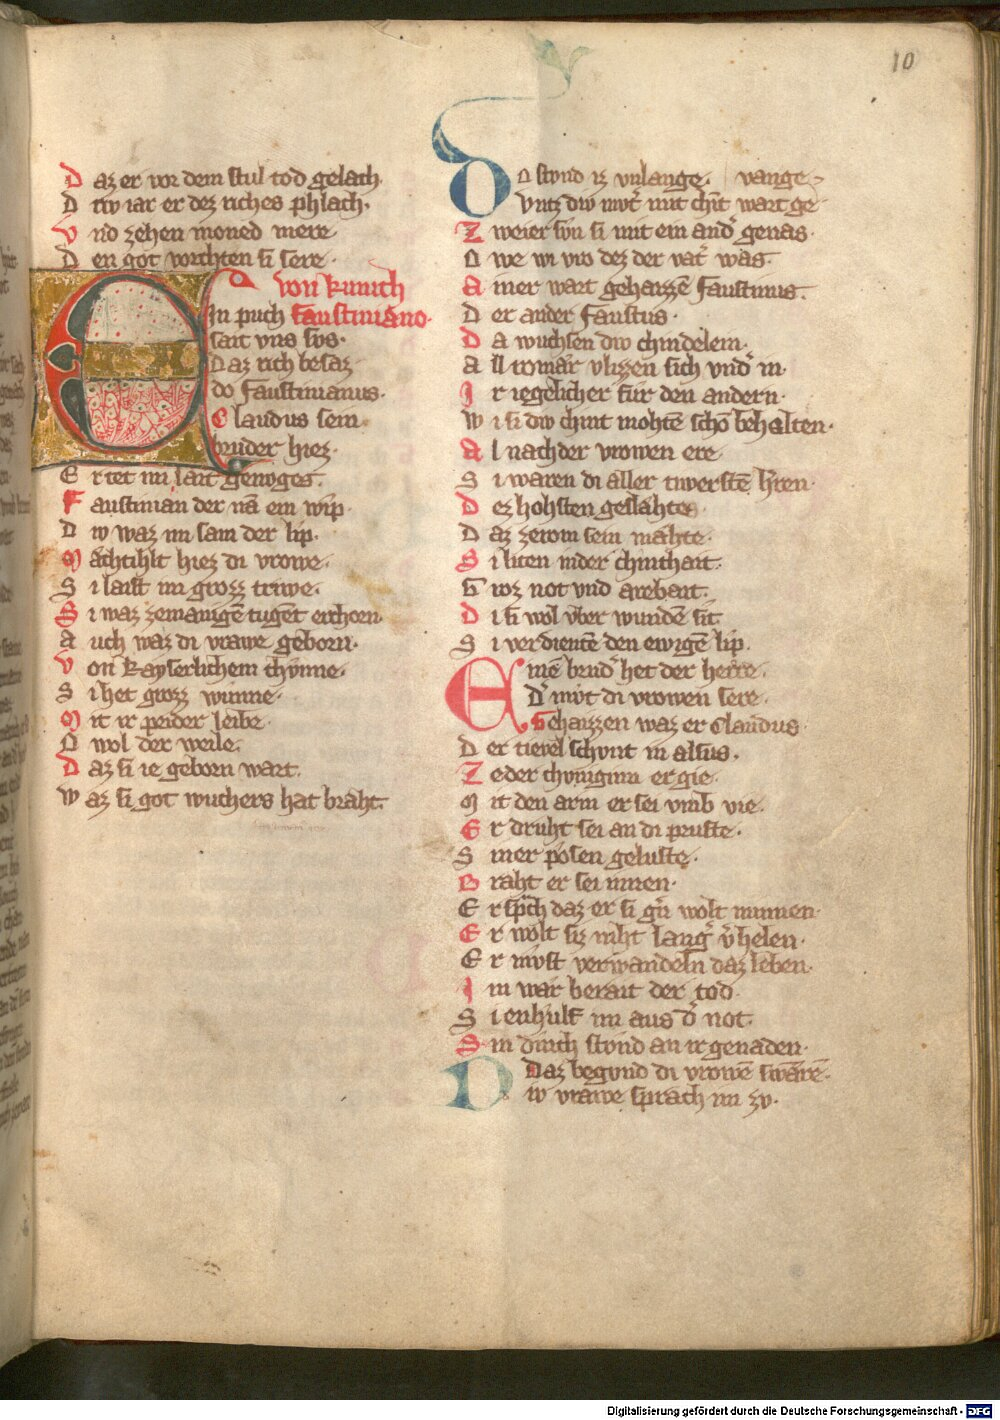 10
D az er vor dem stul tod gelach.
D riv iar er dez riches phlach.
V nd zehen moned mere.
D en got vorchten si sere.
von kunich
E in puch faustiniano.
sait vns svs.
Daz rich besaz
do faustinianus.
Claudus sein
bruder hiez.
E r tet im lait genvges.
F austinian der nā ein wip.
D iv waz im sam der lip.
M ächtihlt hiez di vrowe.
S i laist im grozz triwe.
S i waz ze manigē tugēt erchorn
A uch waz di vrawe geborn.
V on kayserlichem chvnne.
S i het grozz wunne.
M it ir peider leibe.
O wol der weile.
D az si ie geborn wart.
W az si got wuchers hat braht.
Do stvnd iz vnlange. vange
Vntz div mvt̄ mit chīt wart ge
Z weier svn si mit ein and̄ genas.
O we wi vro dez der vat̄ was.
A iner wart gehaizzē faustinus.
D er ander faustus.
D a wuchsen div chindelein.
A ll romær vlizzen sich vnd̄ in.
I r iegelicher für den andern.
W i si div chint mohtē schō behalten.
A l nach der vrowen ere.
S i waren di aller tiwerstē h̄ren.
D ez hohsten geslähtes
D az ze rom sein mahte.
S i liten in der chinthait.
G roz not vnd arebait.
D i si wol vber wundē sit.
S i verdientē den ewigē lip.
E inē brud̄ het der herre.
D̄ mvt di vrowen sere.
Gehaizzen waz er Claudus.
D er tievel schvnt in alsus.
Z e der chvniginn er gie.
M it den arm er sei vmb vie.
E r druht sei an di pruste.
S iner posen geluste.
B raht er sei innen.
E r sp̄ch daz er si gn̄ wolt minnen.
E r wolt siz niht lanḡ v̄helen.
E r mvst verwandeln daz leben.
I m wær berait der tod.
S i enhulf im aus d̄ not.
S in dinch stvnd an ir genaden.
Daz begvnd di vrowē swarē.
D iv vrawe sprach im zv.
Digitalisierung gefördert durch die Deutsche Forschungsgemeinschaft - DFG